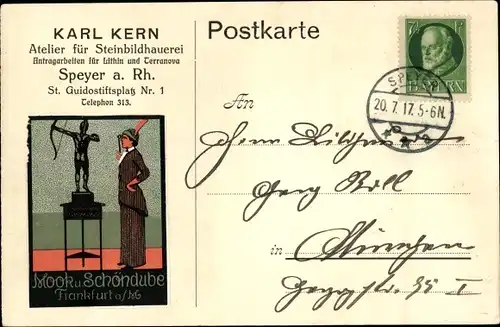 KARL KERN
Atelier für Steinbildhauerei
Antragarbeiten für Lithin und Terranova
Speyer a. Rh.
St. Guidostiftsplatz Nr. 1
Telephon 313.
Postkarte
7½
BAYERN
SPEYER
20. 7. 17. 5-6N.
An
Herrn
Georg
in München
35 I
Mook u. Schöndube
Frankfurt a/M